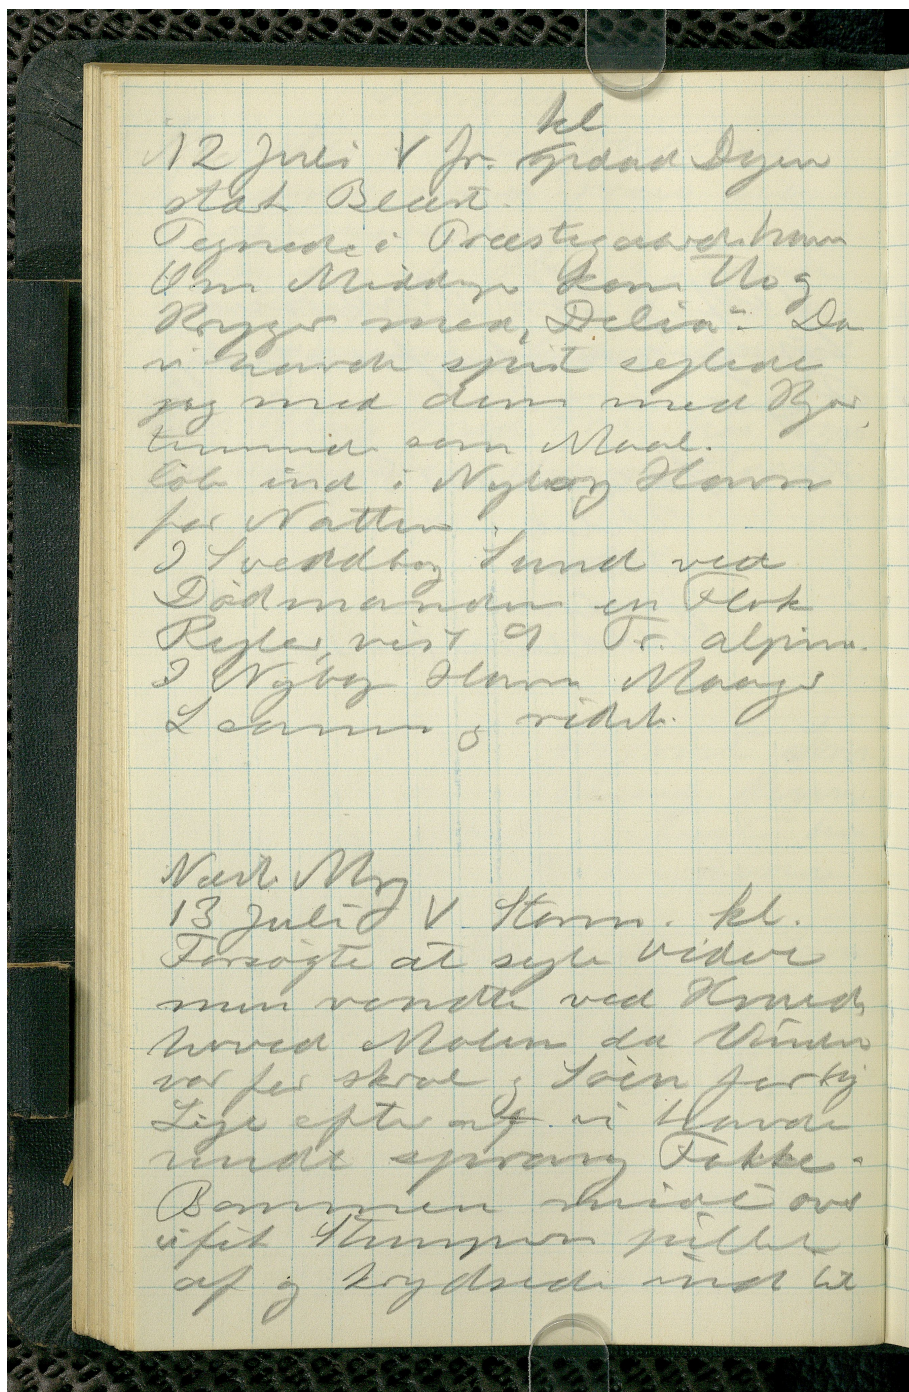 kl
12 Juli V fr. Graad Dizen
stærk Blæst.
Tegnede i Præstegaardshaven
Om Middag kom Uo g
Krygger med "Delia". Da
vi havde spist sejlede
jeg med dem med Kjær
teminde som Maal.
løb ind i Nyborg Havn
for Natten.
I Svendborg Sund ved
Dødmanden en Flok
Ryler, vist 9 Tr. alpina.
I Nyborg Havn Maager
L canus og ridib.
Næste Mrg
13 Juli V. Storm. kl.
Forsøgte at sejle videre
men vendte ved Knuds
hoved Molen da Vinden
var for skral og Søen for høj
Lige efter at vi havde
vendt sprang Fokke-
Bommen midt over
vi fik Stumpen pillet
af og krydsede ind til